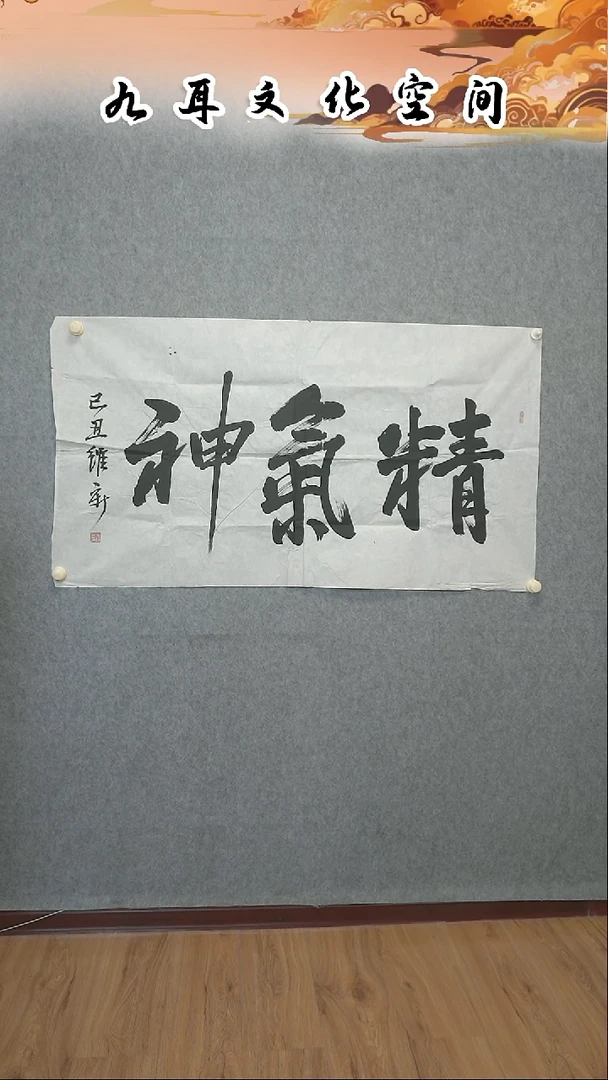 九耳文化空间
精氣神
己丑維新